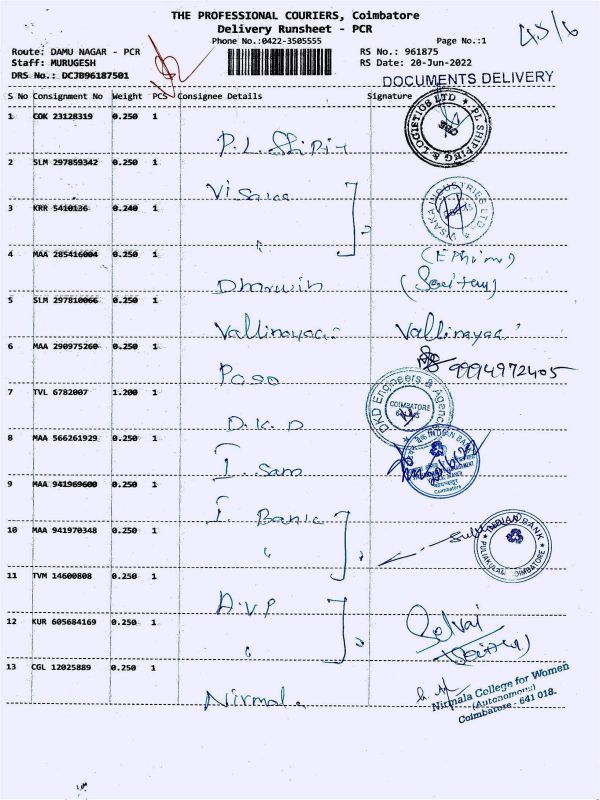 THE PROFESSIONAL COURIERS, Coimbatore
Delivery Runsheet - PCR
Phone No.:0422-3505555 Page No.:1
Route: DAMU NAGAR - PCR RS No.: 961875
Staff: MURUGESH RS Date: 20-Jun-2022
DRS No.: DCJB96187501 DOCUMENTS DELIVERY
S No Consignment No Weight PCS Consignee Details Signature
1 COK 23128319 0.250 1
P.L. Shipin
PL SHIPPING & LOGISTICS LTD
CBE
2 SLM 297859342 0.250 1
Visaka
VISAKA INDUSTRIES LTD.
3 KRR 5410136 0.240 1
"
4 MAA 285416004 0.250 1
Dharwin
(Security)
5 SLM 297810066 0.250 1
Vallinayaa Vallinayaa
6 MAA 290975260 0.250 1
Paso 9994972405
7 TVL 6782007 1.200 1
D.K.D
DKD Engineers & Agency
COIMBATORE
8 MAA 566261929 0.250 1
I. Sam
INDIAN BANK
Coimbatore
9 MAA 941969600 0.250 1
I. Bank
10 MAA 941970348 0.250 1
"
INDIAN BANK
PULIAKULAM, COIMBATORE
11 TVM 14600808 0.250 1
A.V.P
12 KUR 605684169 0.250 1
"
Selvai
(Security)
13 CGL 12025889 0.250 1
Nirmala
Nirmala College for Women
(Autonomous)
Coimbatore - 641 018.